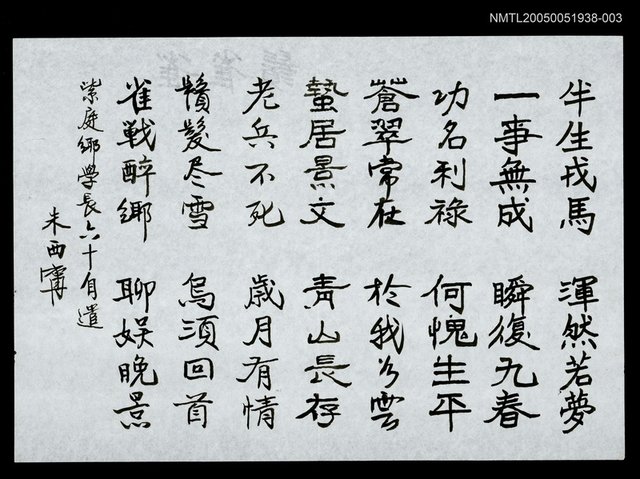 NMTL20050051938-003
半生戎馬　渾然若夢
一事無成　瞬復九春
功名利祿　何愧生平
蒼翠常在　於我為雲
蟄居景文　青山長存
老兵不死　歲月有情
鬚髮尽雪　烏須回首
雀战醉鄉　聊娱晚景
紫庭鄉学長六十自遣
朱西甯